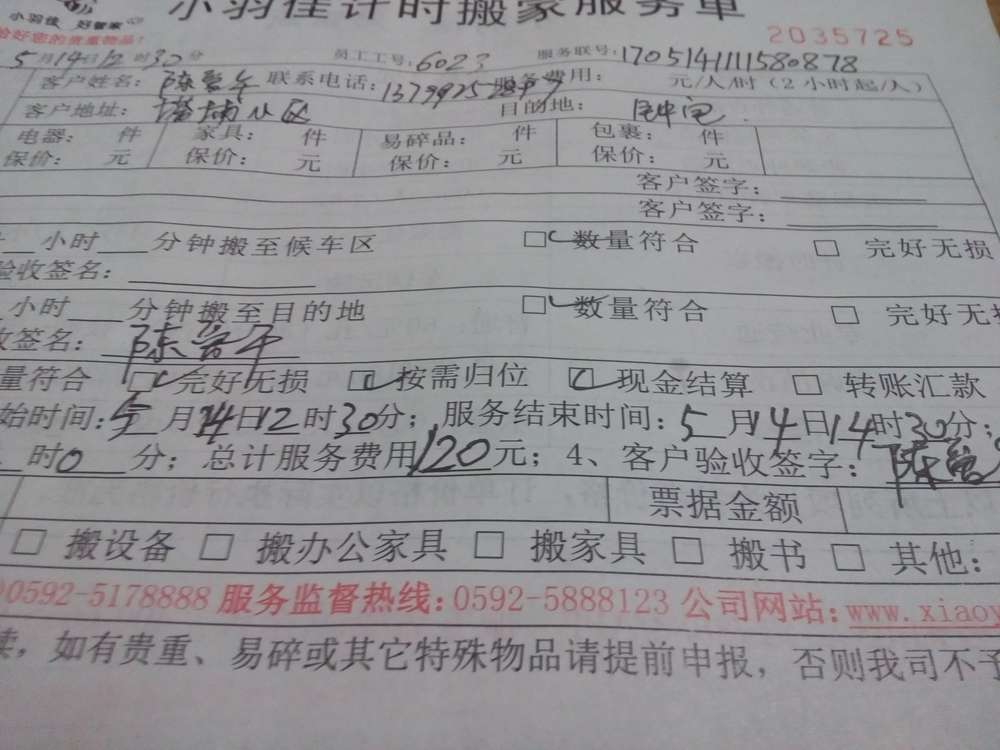 小羽佳计时搬家服务单
小羽佳 好管家
2035725
5月14日12时30分 员工工号:6023 服务联号:1705141111580878
客户姓名: 陈 联系电话: 服务费用: 元/人/时(2小时起/人)
客户地址: 塔埔小区 目的地:
电器: 件 家具: 件 易碎品: 件 包裹: 件
保价: 元 保价: 元 保价: 元 保价: 元
客户签字:
客户签字:
小时 分钟搬至候车区 数量符合 完好无损
验收签名:
小时 分钟搬至目的地 数量符合 完好无损
收签名: 陈
量符合 完好无损 按需归位 现金结算 转账汇款
始时间:5月14日12时30分;服务结束时间:5月14日14时30分;
时0分;总计服务费用120元;4、客户验收签字:陈
票据金额
搬设备 搬办公家具 搬家具 搬书 其他:
0592-5178888 服务监督热线:0592-5888123 公司网站:www.xiaoy
读,如有贵重、易碎或其它特殊物品请提前申报,否则我司不予